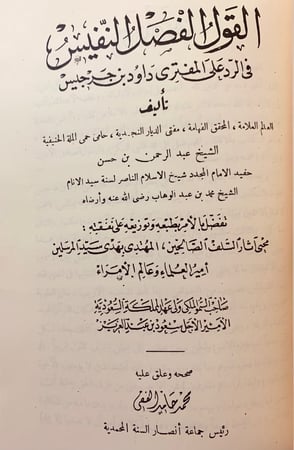 القول الفصل النفيس
في الرد على المفتري داود بن جرجيس
تأليف
العالم العلامة ، المحقق الفهامة ، مفتي الديار النجدية ، حامي حمى الملة الحنيفية
الشيخ عبد الرحمن بن حسن
حفيد الامام المجدد شيخ الاسلام الناصر لسنة سيد الانام
الشيخ محمد بن عبد الوهاب رضي الله عنه وأرضاه
تفضل بالأمر بطبعه وتوزيعه على نفقته :
محيي آثار السلف الصالحين ، المهتدي بهدي سيد المرسلين
أمير العلماء وعالم الأمراء
صاحب السمو الملكي ولي عهد المملكة السعودية
الأمير الأجل سعود بن عبد العزيز
صححه وعلق عليه
محمد حامد الفقي
رئيس جماعة أنصار السنة المحمدية